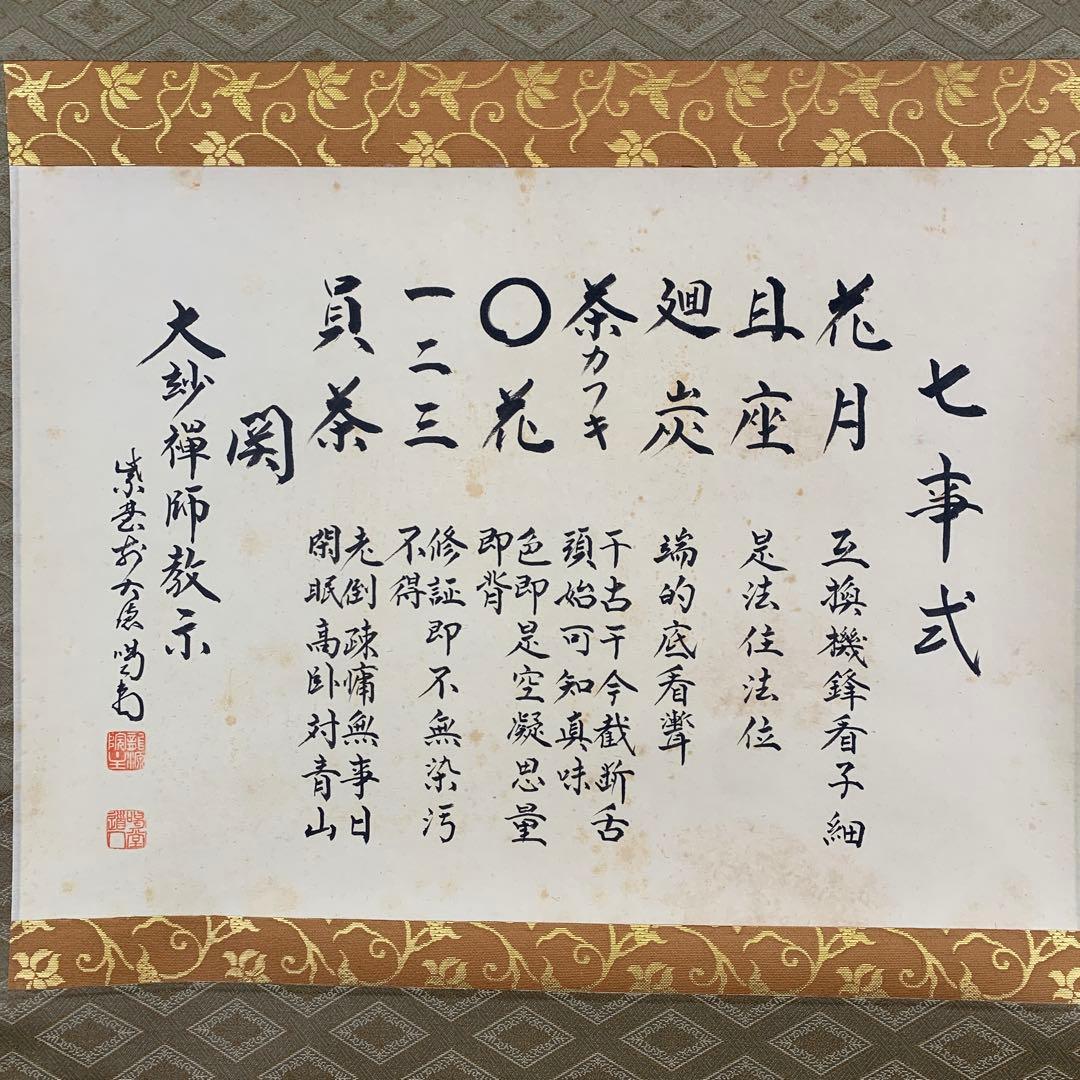 七事式
花月 互換機鋒看子細
且座 是法住法位
廻炭 端的底看聻
茶カフキ 于古于今截断舌
頭始可知真味
〇花 色即是空凝思量
即背
一二三 修証即不無染汚
不得
員茶 老倒疎慵無事日
閑眠高臥対青山
関
大玅禪師教示
紫野前大徳喝堂
龍源院主